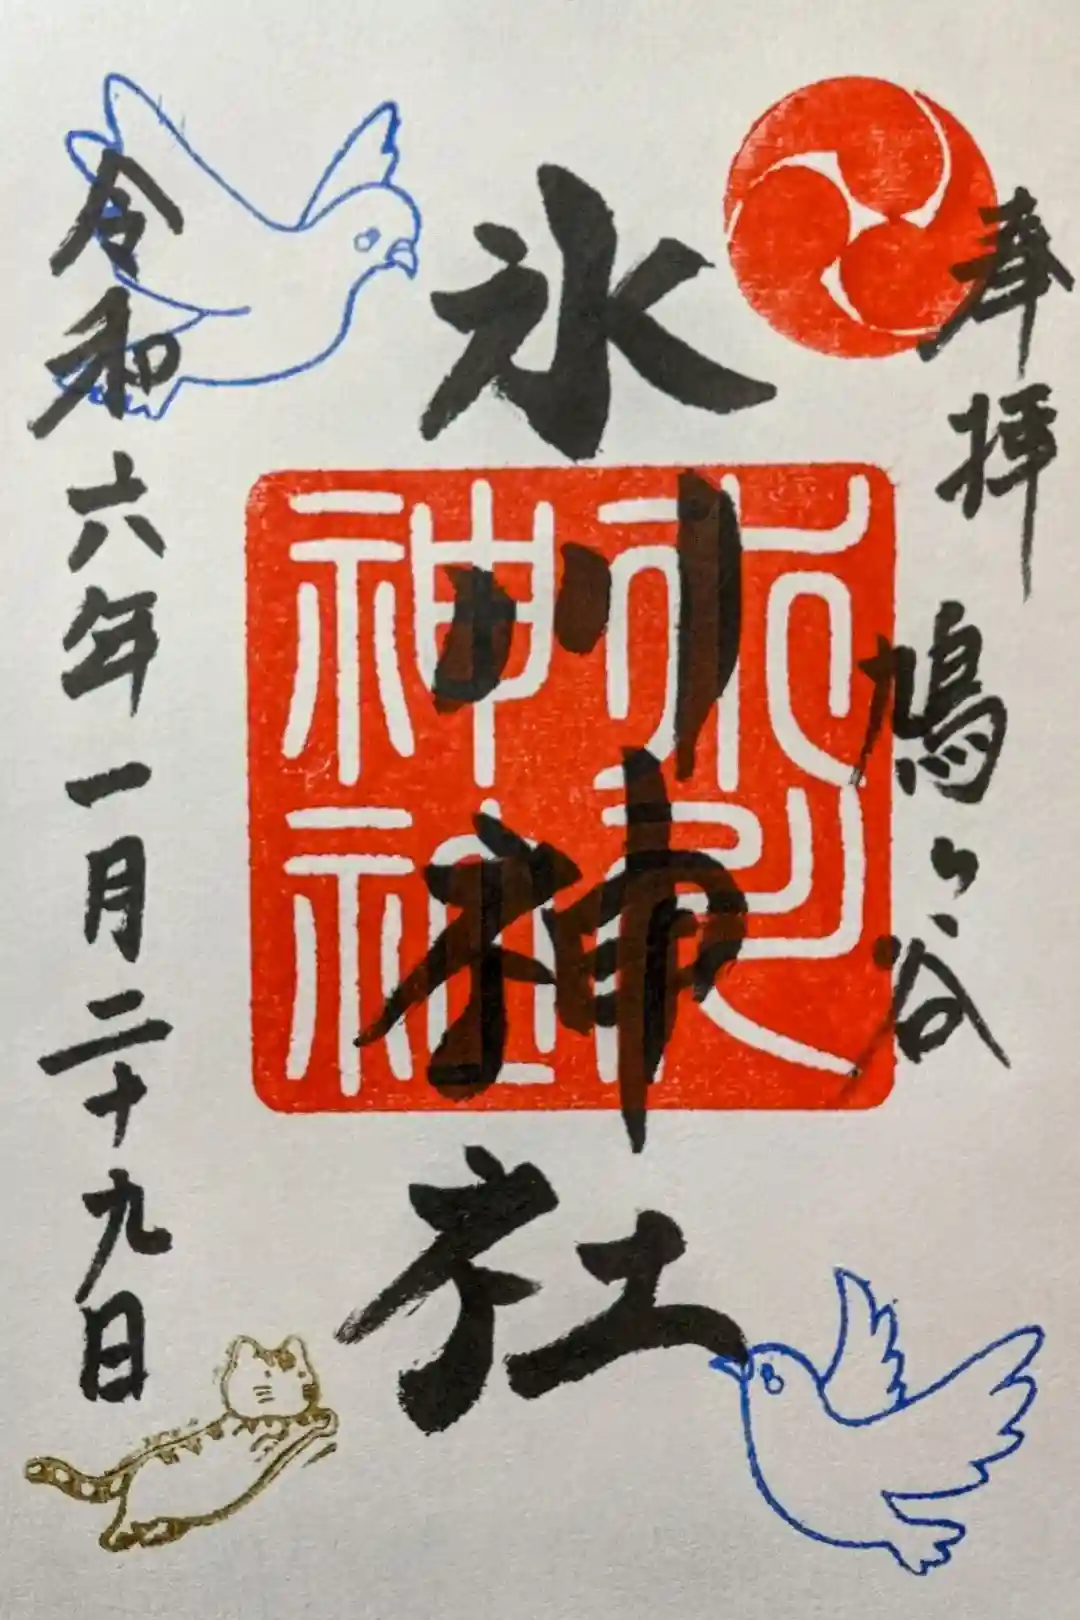 奉拝 鳩ヶ谷
氷川神社
氷川
神社
令和六年一月二十九日